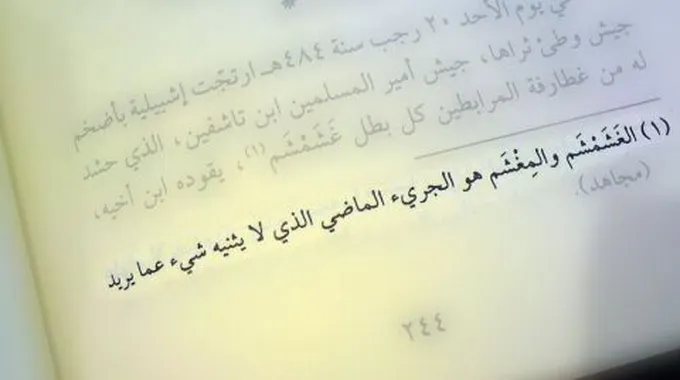 *
في يوم الأحد ٢٠ رجب سنة ٤٨٤هـ ارتجّت إشبيلية بأضخم
جيش وطئ ثراها، جيش أمير المسلمين ابن تاشفين، الذي حشد
له من غطارفة المرابطين كل بطل غَشَمْشَم (١)، يقوده ابن أخيه،
(١) الغَشَمْشَم والمِغْشَم هو الجريء الماضي الذي لا يثنيه شيء عما يريد
(مجاهد).
٢٤٤